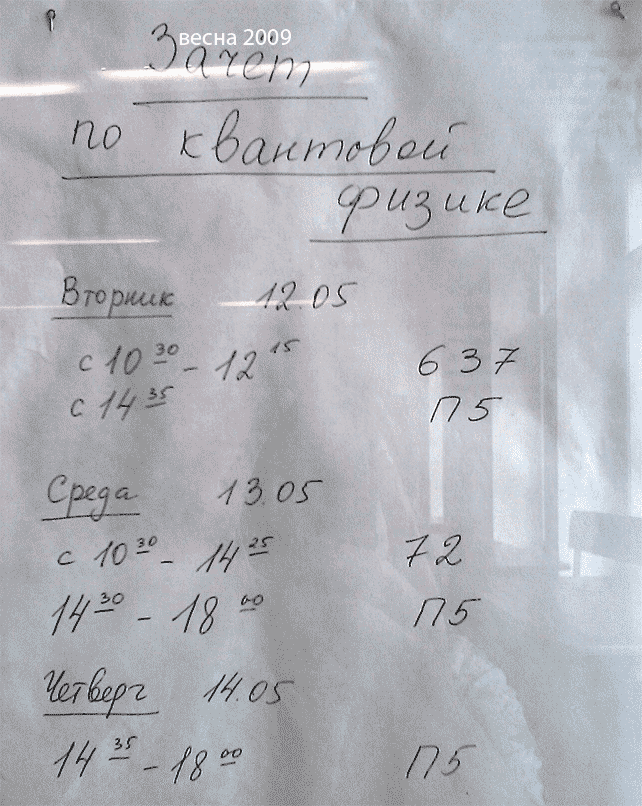 весна 2009
Зачет
по квантовой
физике
Вторник 12.05
с 10 30 - 12 15 637
с 14 35 П5
Среда 13.05
с 10 30 - 14 25 72
14 30 - 18 00 П5
Четверг 14.05
14 35 - 18 00 П5